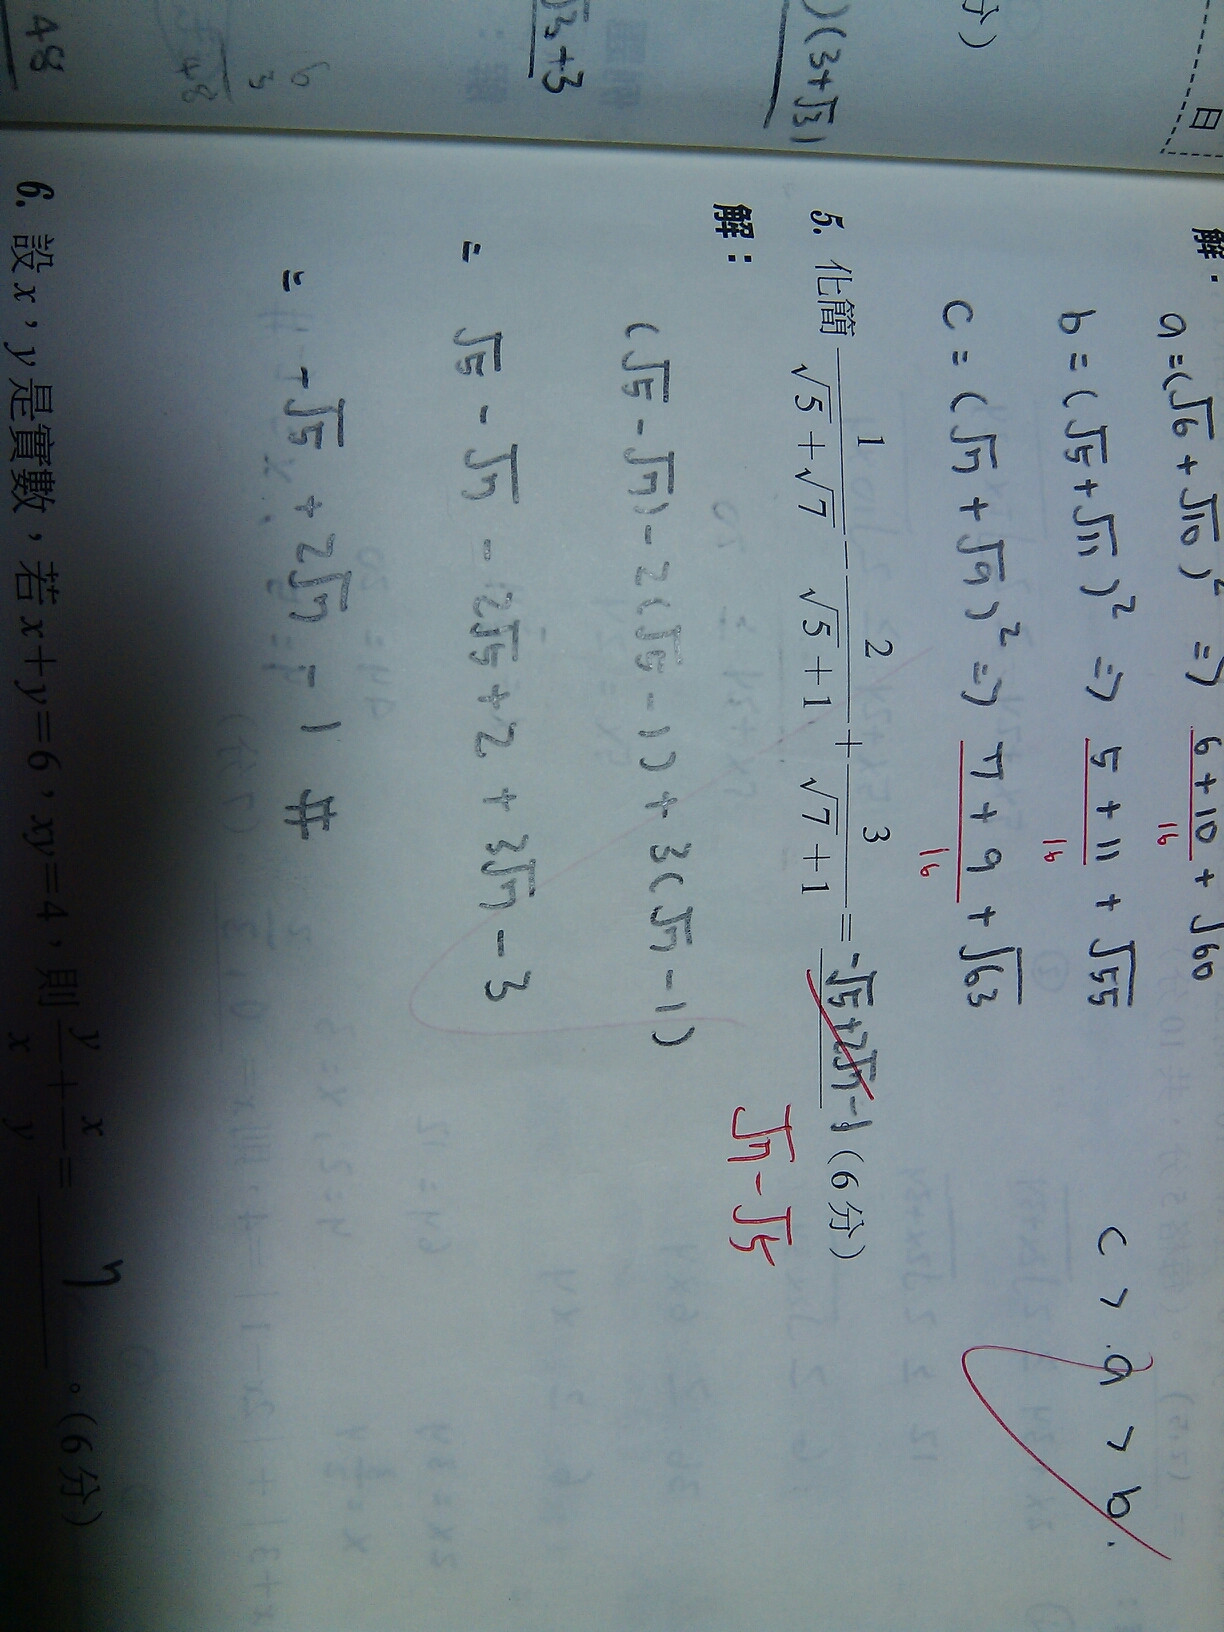 分)
日
)(3+√3)
√3+3
48
解:
a=(√6+√10)² => 6+10+√60
16
b=(√5+√11)² => 5+11+√55
16
c=(√7+√9)² => 7+9+√63
16
c > a > b.
5. 化簡 1/(√5+√7) - 2/(√5+1) + 3/(√7+1) = -√5+2√7-1 (6分)
√7-√5
解:
(√5-√7)-2(√5-1)+3(√7-1)
= √5-√7-2√5+2+3√7-3
= -√5+2√7-1 #
6. 設x,y是實數,若x+y=6,xy=4,則 y/x + x/y = 7 。(6分)